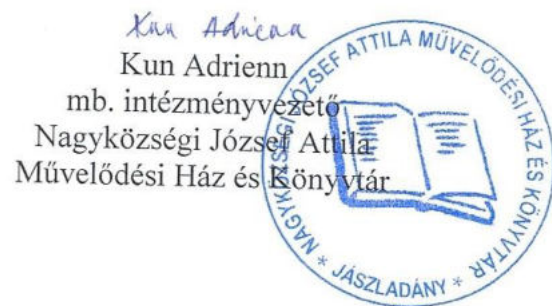 Kun Adrienn
Kun Adrienn
mb. intézményvezető
Nagyközségi József Attila
Művelődési Ház és Könyvtár
NAGYKÖZSÉGI JÓZSEF ATTILA MŰVELŐDÉSI HÁZ ÉS KÖNYVTÁR
* JÁSZLADÁNY *